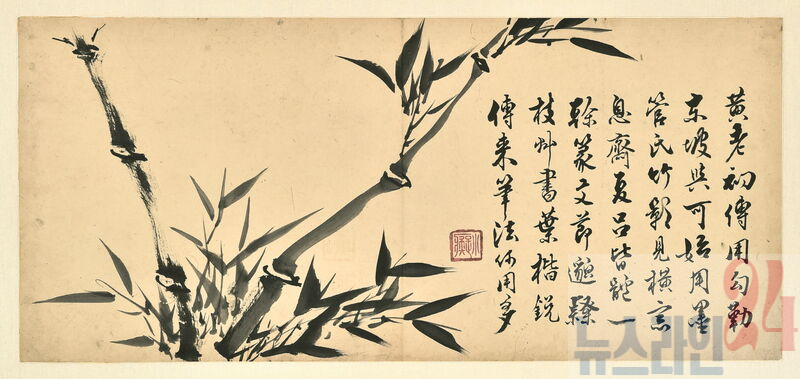 黄老初傳用勾勒
东坡與可始用墨
管氏竹影見横窓
息齋夏呂皆體一
幹篆文節邈隸
枝艸書葉楷銳
傳来筆法何用多
뉴스라인24